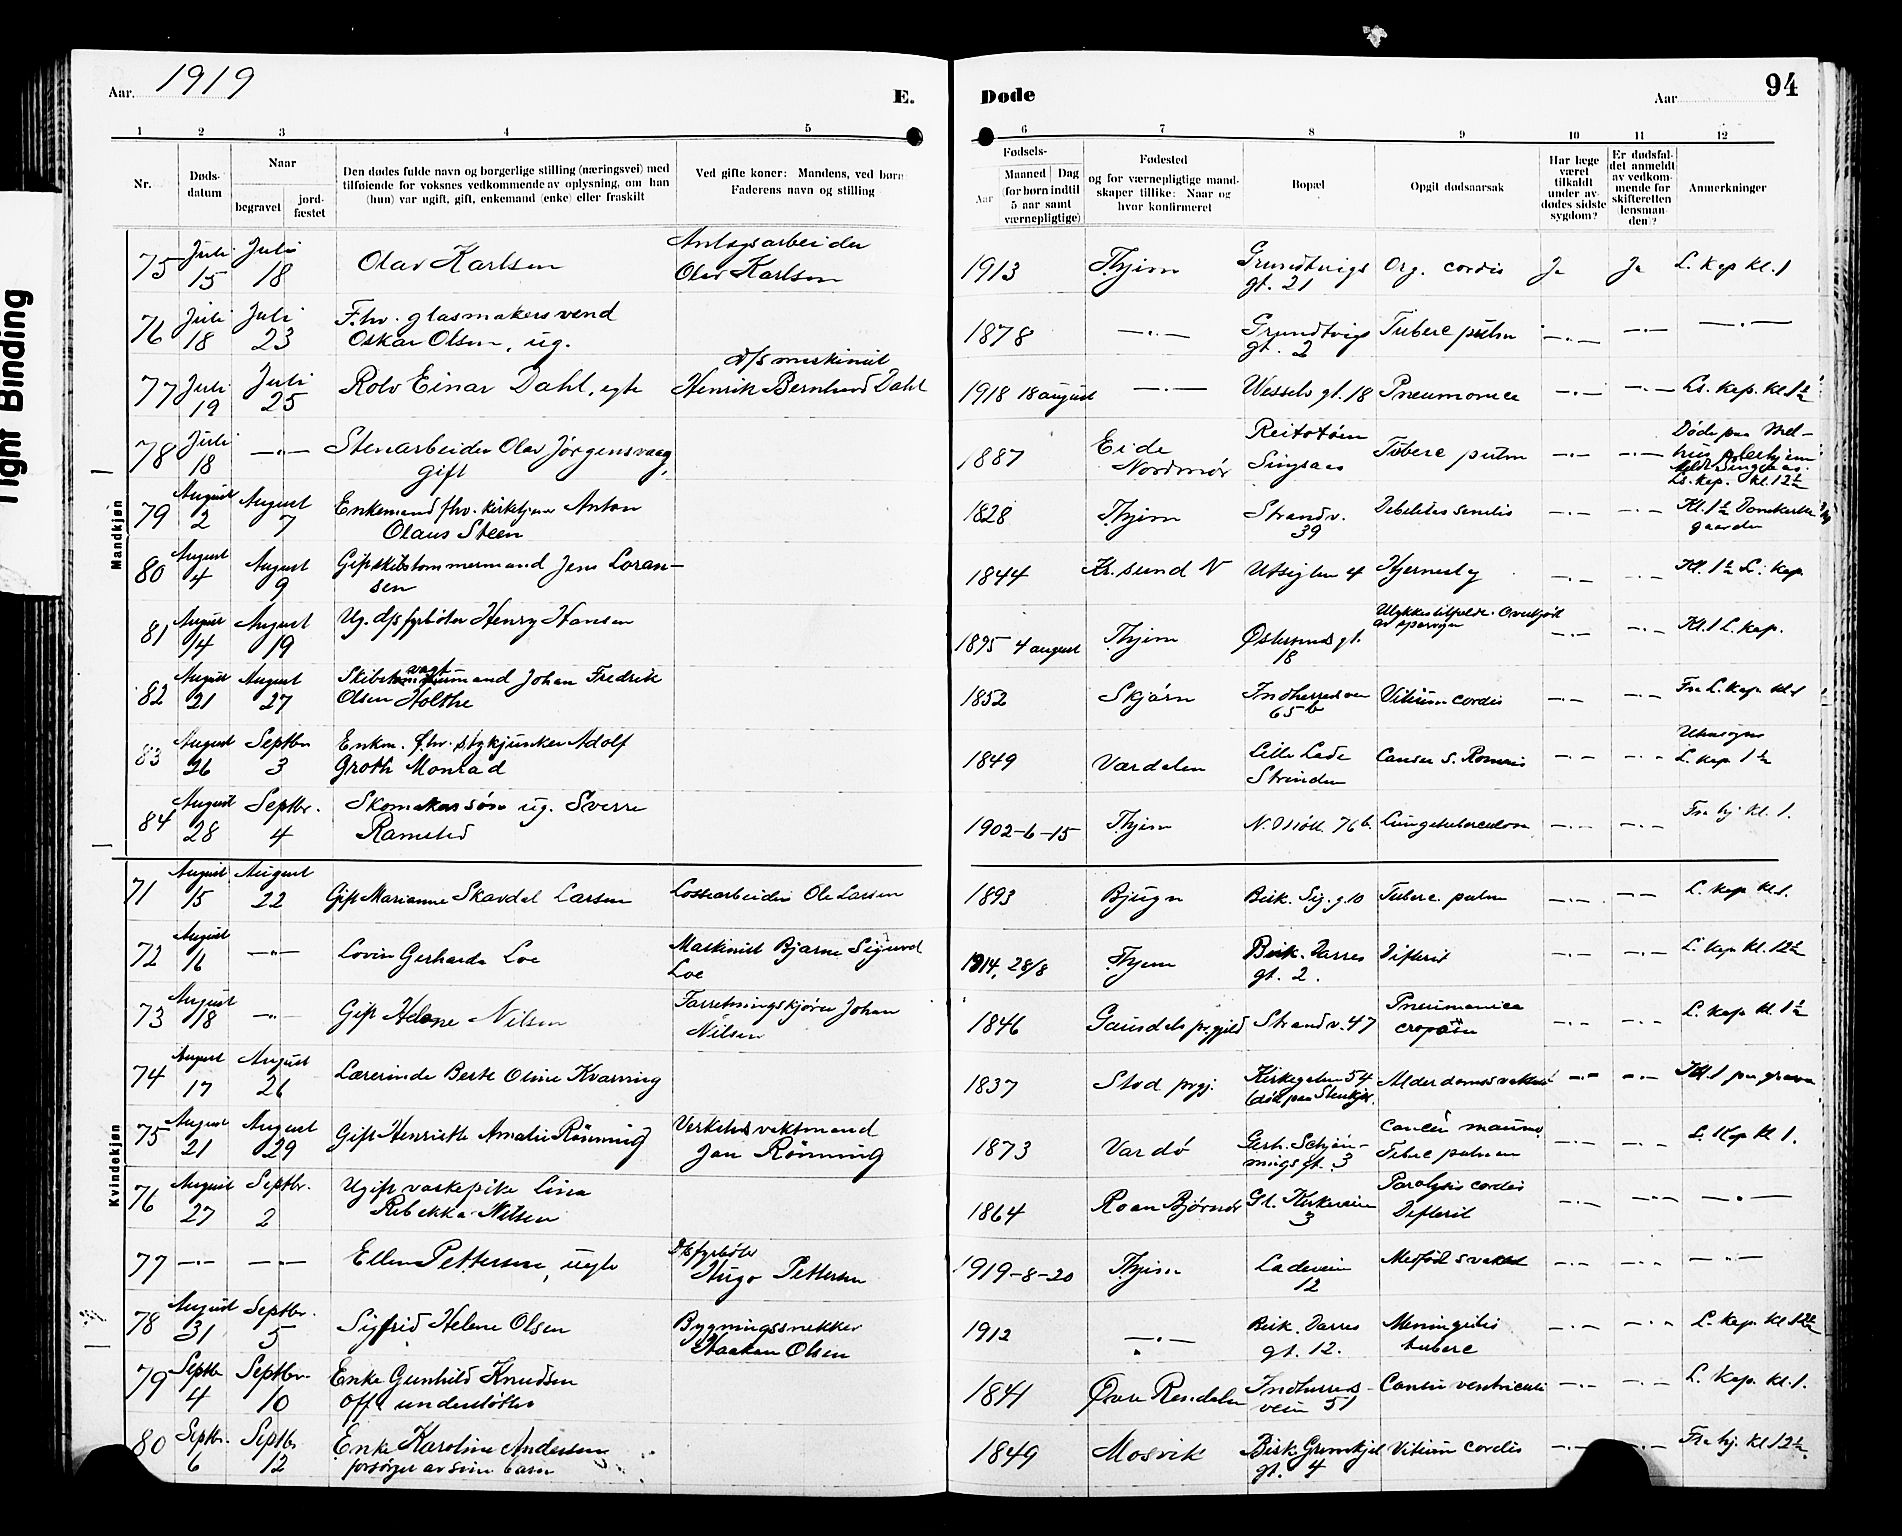 Aar. 1919
E.
Døde
Aar
94
1 2 3 4 5 6 7 8 9 10 11 12
Nr.
Døds-
datum
Naar
begravet
jord-
fæstet
Den dødes fulde navn og borgerlige stilling (næringsvei) med
tilføiende for voksnes vedkommende av oplysning, om han
(hun) var ugift, gift, enkemand (enke) eller fraskilt
Ved gifte koner: Mandens, ved børn
Faderens navn og stilling
Fødsels-
Aar
Maaned Dag
(for børn indtil
5 aar samt
værnepligtige)
Fødested
og for værnepligtige mand-
skaper tillike: Naar og
hvor konfirmeret
Bopæl
Opgit dødsaarsak
Har læge
været
tilkaldt
under av-
dødes sidste
sygdom?
Er dødsfal-
det anmeldt
av vedkom-
mende for
skifteretten
(lensman-
den)?
Anmerkninger
Tight Binding
Mandkjøn
75 Juli 15 Juli 18
Olav Karlsen
Anlægsarbeider
Olav Karlsen
1913 Thjem
Grundtvigs
gt. 21
Org. cordis Ja Ja L. kap kl. 1
76 Juli 18 Juli 23
F.hv. glasmakersvend
Oskar Olsen, ug.
1878 —"—
Grundtvigs
gt. 2
Tuberc pulm —"— —"— —"—
77 Juli 19 Juli 25
Rolv Einar Dahl, egte
d/s maskinist
Henrik Bernhard Dahl
1918 18 august —"— Wessels gt. 18 Pneumonica —"— —"— Ls. kap. kl. 1½
78 Juli 18 —"—
Stenarbeider Olav Jørgensvaag,
gift
1887
Eide
Nordmør
Reitstøen
Singsaas
Tuberc pulm —"— —"—
Døde paa Mel-
hus pleiehjem
Ls. kap. kl. 12½
79 August 2 August 7
Enkemand fhv. kirketjener Anton
Olaus Steen
1828 Thjem
Strandv.
39
Debilitas senilis —"— —"—
Kl. 1½ Domkirke
gaarden
80 August 4 August 9
Gift skibstømmermand Jens Loran-
sen
1844 Kr.sund N Utsigten 4 Hjerneslag —"— —"— Kl. 1½ L. kap
81 August 14 August 19
Ug. d/s fyrbøter Henry Hansen
1895 4 august Thjem
Østersunds gt.
18
Ulykkestilfælde. Overkjørt
av sporvogn
—"— —"— Kl. 1 L. kap.
82 August 21 August 27
Skibs vagtmand Johan Fredrik
Olsen Holthe
1852 Skjørn
Indherredsvn
65b
Vitium cordis —"— —"— Fra L. kap kl. 1
83 August 26 Septbr 3
Enkm. f.hv. stykjunker Adolf
Groth Monrad
1849 Værdalen
Lille Lade
Strinden
Cancer S. Romanis —"— —"—
Utensogns
L. kap. 1½
84 August 28 Septbr. 4
Skomakersøn ug. Sverre
Ramstad
1902-6-15 Thjem N. Møll. 76 b. Lungetuberculose —"— —"— Fra hj kl. 1.
Kvindekjøn
71 August 15 August 22
Gift Marianne Skavdal Larsen
Lossearbeider Ole Larsen
1893 Bjugn Bisk. Sig. g. 10 Tuberc. pulm —"— —"— L. kap kl. 1.
72 August 16 —"—
Lovise Gerharda Loe
Maskinist Bjarne Sigurd
Loe
1914, 28/8 Thjem
Bisk. Darres
gt. 2.
Difterit —"— —"— L. kap kl. 12½
73 August 18 —"—
Gift Helene Nilsen
Forretningskjører Johan
Nilsen
1846 Gausdals prgjeld Strandv. 47
Pneumonica
croposa
—"— —"— L. kap kl. 1½
74 August 17 August 26
Lærerinde Berte Oline Kvarning
1837 Stod prgj.
Kirkegaten 54
(død paa Stenkjær.
Alderdomssvakhet —"— —"— Kl. 1 paa graven
75 August 21 August 29
Gift Henriette Amalie Rönning
Verksteds vaktmand
Jan Rönning
1873 Vardö
Gerh. Schøn-
nings gt. 3
Cancer mamma
Tuberc pulmon
—"— —"— L. Kap Kl 1.
76 August 27 Septbr. 2
Ugift vaskepike Lina
Rebekka Nilsen
1864 Roan Bjørnør
Gl. Kirkeveien
3
Paralysis cordis
Difterit
—"— —"— —"—
77 —"— —"—
Ellen Pettersen, uegte
D/s fyrbøter
Hugo Pettersen
1919-8-20 Thjem
Ladeveien
12
Medfødt svakhet —"— —"— —"—
78 August 31 Septbr. 5
Sigfrid Helene Olsen
Bygningssnekker
Haakon Olsen
1912 —"—
Bisk. Darres
gt. 12.
Meningitis
tuberc
—"— —"— L. kap. kl 12½
79 Septbr 4 Septbr. 10
Enke Gunhild Knudsen
off. understøttes
1841 Øvre Rendalen
Indherreds-
veien 51
Cancer ventriculi —"— —"— L. kap. kl. 1.
80 Septbr. 6 Septbr 12
Enke Karoline Andersen
forsørges av sine barn
1849 Mosvik
Bisk. Grimkjel
gt. 4
Vitium cordis —"— —"— Fra hj. kl 12½